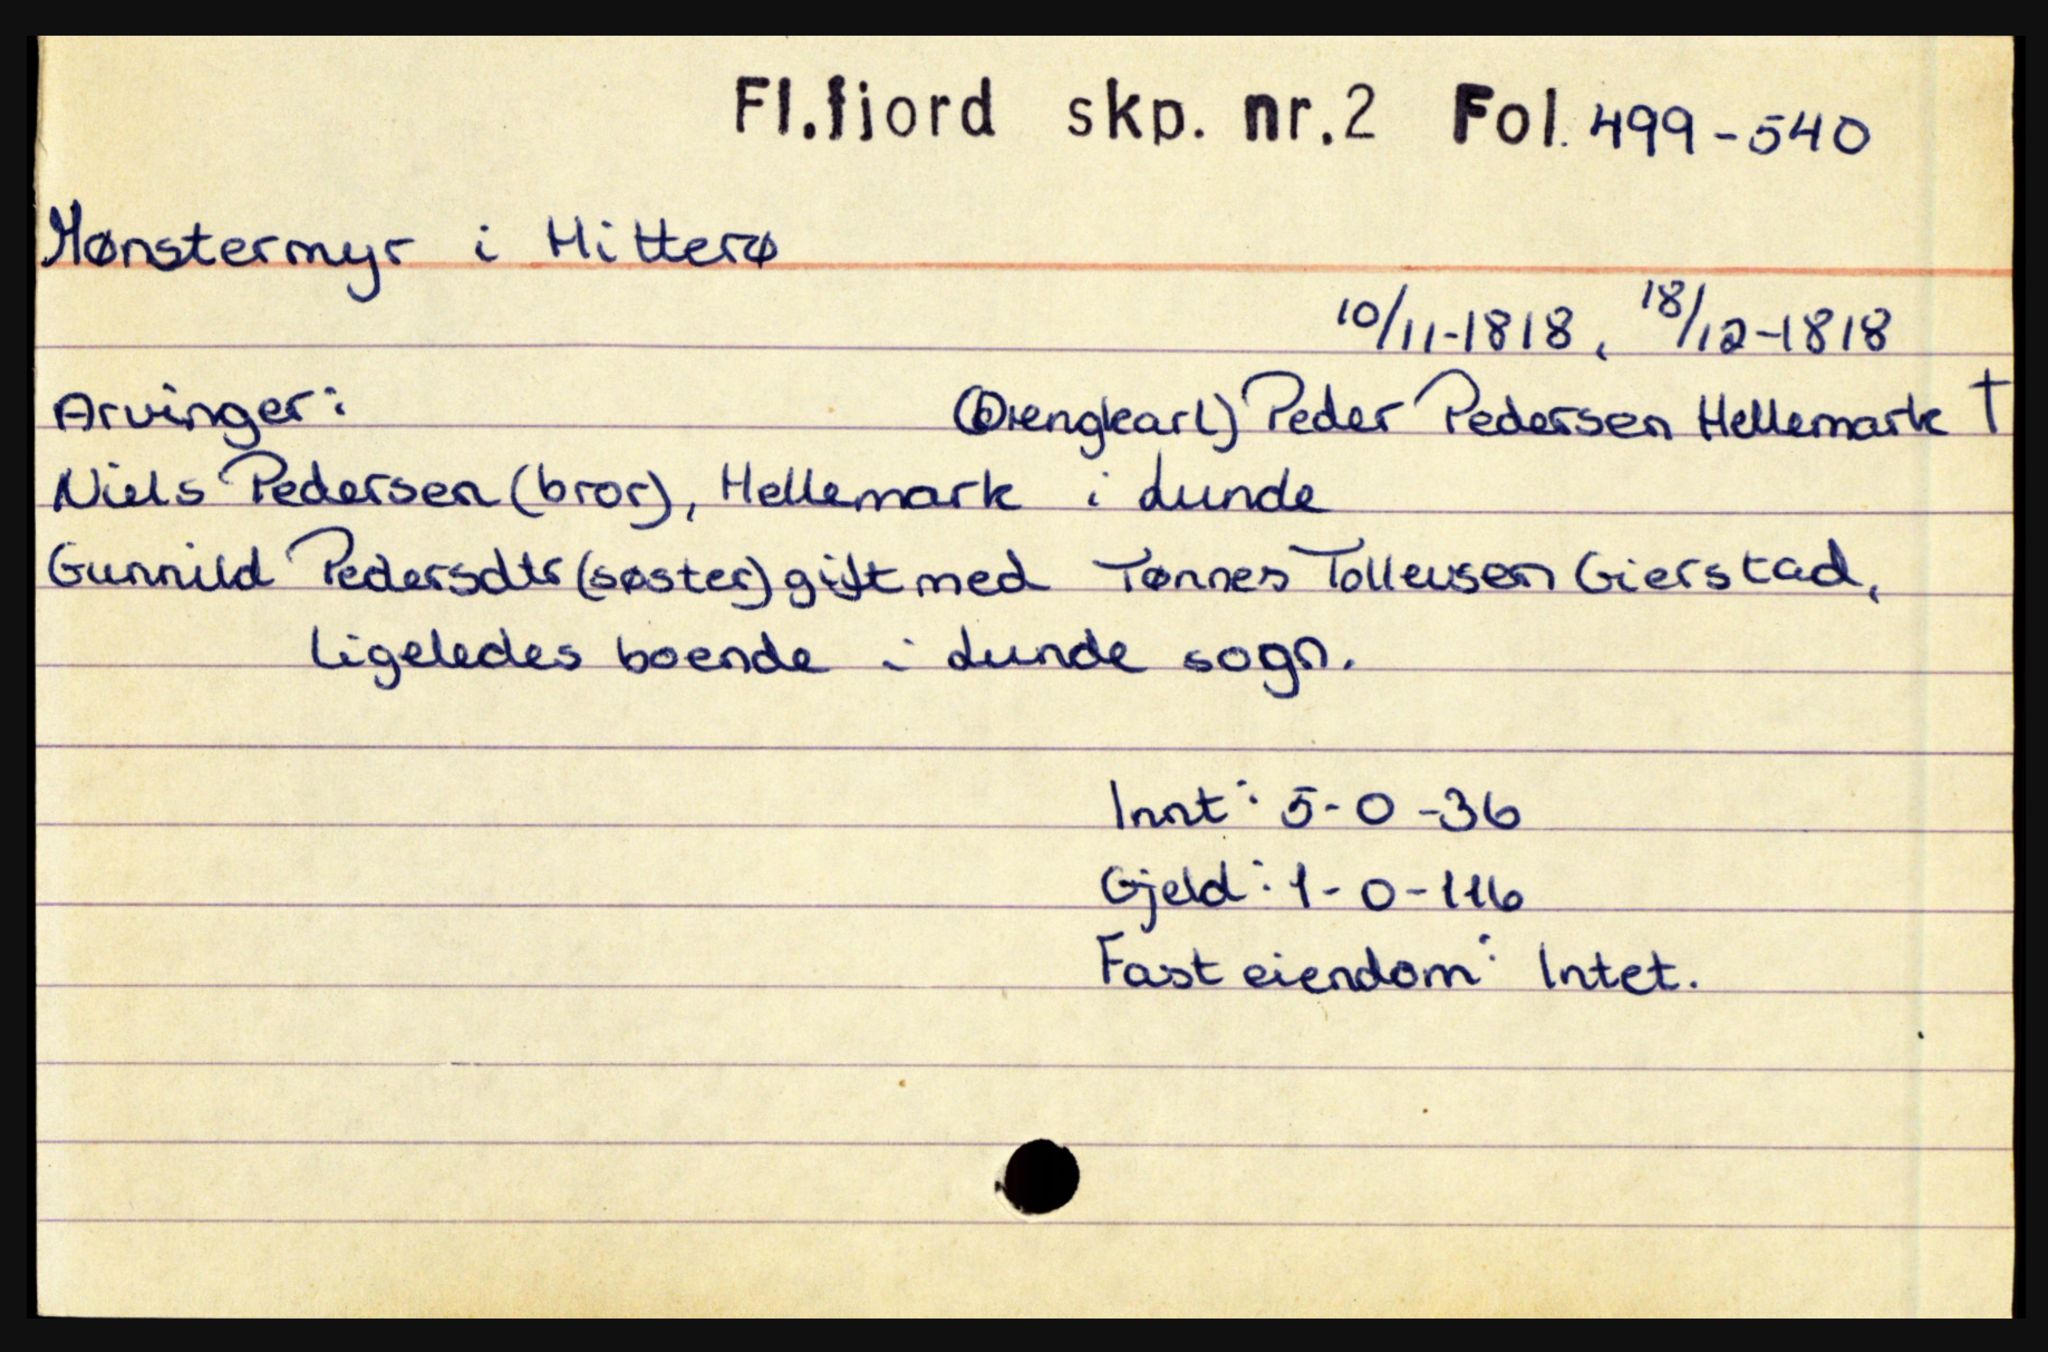 Fl.fjord skp. nr.2 Fol. 499-540
Mønstermyr i Hitterø
10/11-1818, 18/12-1818
Arvinger: (Drengkarl) Peder Pedersen Hellemark †
Niels Pedersen (bror), Hellemark i Lunde
Gunnild Pedersdtr (søster) gift med Tønnes Tolleusen Gierstad,
ligeledes boende i Lunde sogn.
Innt: 5-0-36
Gjeld: 1-0-116
Fast eiendom: Intet.